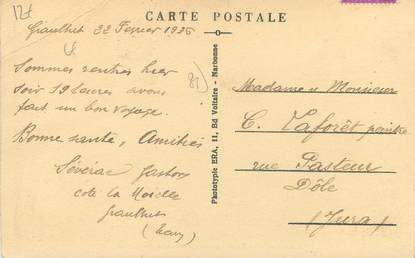 12f
CARTE POSTALE
Graulhet 22 Fevrier 1936
Sommes rentrés hier
soir 19 heures avons
fait un bon voyage.
Bonne santé, Amitiés
Sévérac Gaston
cote la Moielle
Graulhet
(Tarn)
Phototypie ERA, 11, Bd Voltaire - Narbonne
Madame & Monsieur
C. Laforêt peintre
rue Pasteur
Dôle
(Jura)